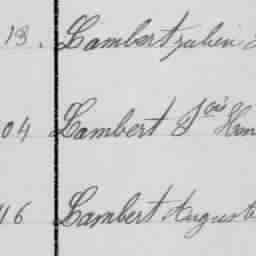 13. Lambert Julien
04 Lambert Fois Hen
16 Lambert Auguste